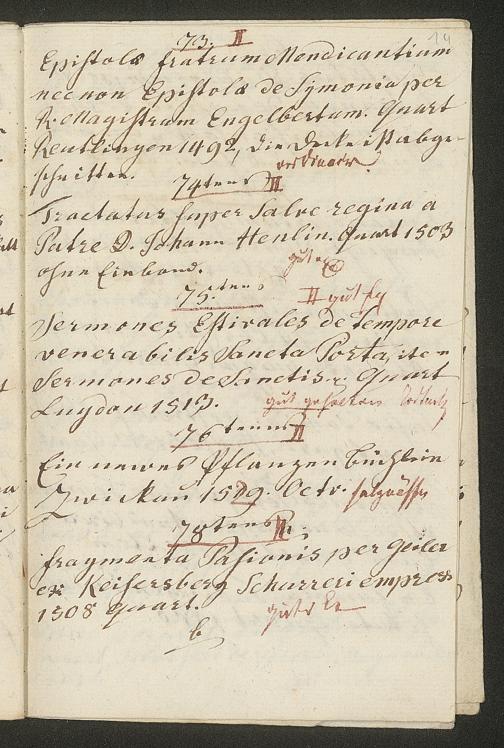 14
73. II
Epistola fratrum Mendicantium
nec non Epistola de Symonia per
Magistrum Engelbertum. Quart
Reutlingen 1492, die Decke ist abge-
schnitten. ordinaer
74tens II
Tractatus super Salve regina a
Patre D. Johann Henlin. Quart 1503
ohne Einband. gut
75.tens II gut
Sermones Estivales de tempore
venerabilis Sancta Porta, item
Sermones de Sanctis. Quart
Lugdon 1513. gut gehalten
76tenns II
Ein newes Pflanzen büchlein
Zwickau 1529. Octv.
78tens II
fragmenta Pasionis per geiler
ex Keisersberg Schurreri empress
1508 quart. gut
b